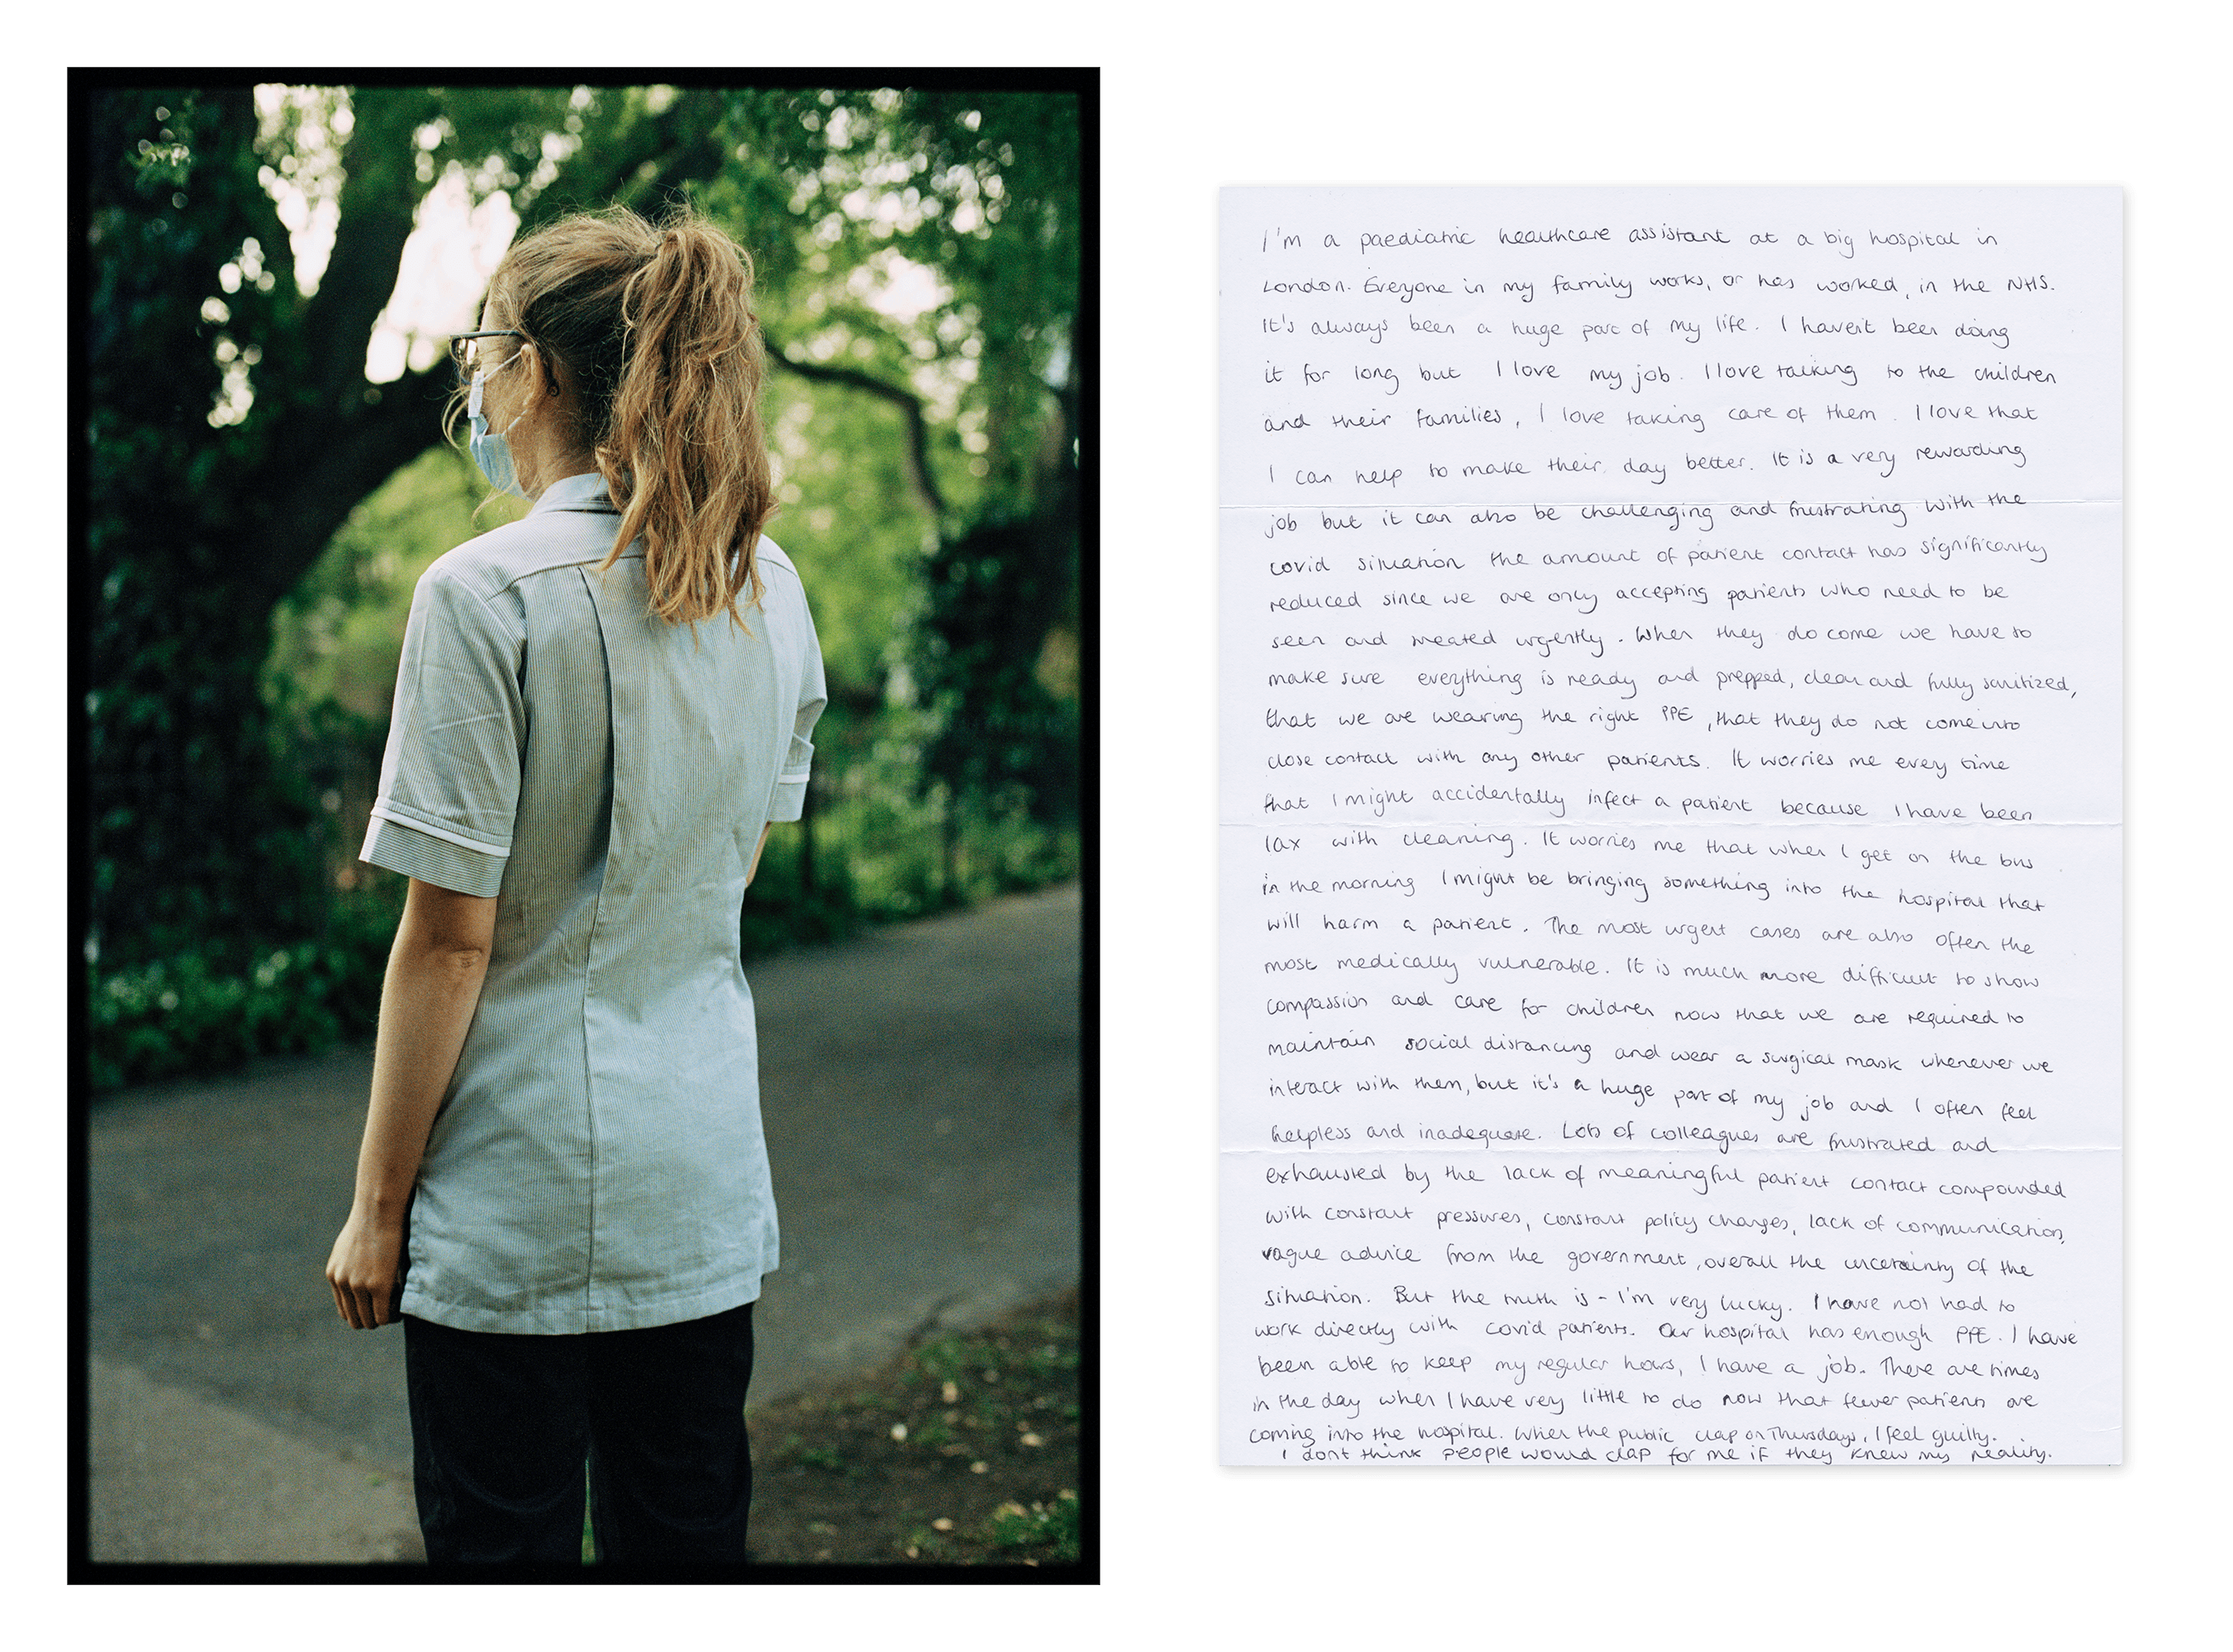 I'm a paediatric healthcare assistant at a big hospital in
London. Everyone in my family works, or has worked, in the NHS.
It's always been a huge part of my life. I haven't been doing
it for long but I love my job. I love talking to the children
and their families, I love taking care of them. I love that
I can help to make their day better. It is a very rewarding
job but it can also be challenging and frustrating. With the
covid situation the amount of patient contact has significantly
reduced since we are only accepting patients who need to be
seen and treated urgently. When they do come we have to
make sure everything is ready and prepped, clean and fully sanitized,
that we are wearing the right PPE, that they do not come into
close contact with any other patients. It worries me every time
that I might accidentally infect a patient because I have been
lax with cleaning. It worries me that when I get on the bus
in the morning I might be bringing something into the hospital that
will harm a patient. The most urgent cases are also often the
most medically vulnerable. It is much more difficult to show
compassion and care for children now that we are required to
maintain social distancing and wear a surgical mask whenever we
interact with them, but it's a huge part of my job and I often feel
helpless and inadequate. Lots of colleagues are frustrated and
exhausted by the lack of meaningful patient contact compounded
with constant pressures, constant policy changes, lack of communication,
vague advice from the government, overall the uncertainty of the
situation. But the truth is - I'm very lucky. I have not had to
work directly with covid patients. Our hospital has enough PPE. I have
been able to keep my regular hours, I have a job. There are times
in the day when I have very little to do now that fewer patients are
coming into the hospital. When the public clap on Thursdays, I feel guilty.
I dont think people would clap for me if they knew my reality.